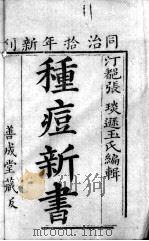 同治拾年新刊
汀郡張琰遜玉氏編輯
種痘新書
善成堂藏板